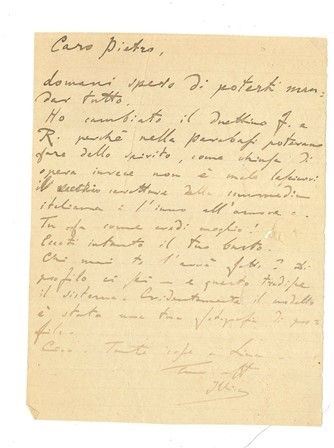 Caro Pietro,
domani spero di poterti man-
dar tutto.
Ho cambiato il duettino F. a
R. perchè nella Parabasi potevamo
fare dello spirito, come chiusa di
opera invece non è male lasciarci
il vecchio carattere della commedia
italiana e l'inno all'amore...
Tu fa come credi meglio!
Eccoti intanto il tuo busto.
Chi mai te l'avrà fatto? Di
profilo ci sei — e questo tradisce
il sistema. Evidentemente il modello
è stata una tua fotografia di pro-
filo.
Ciao. Tante cose a
Tuo aff